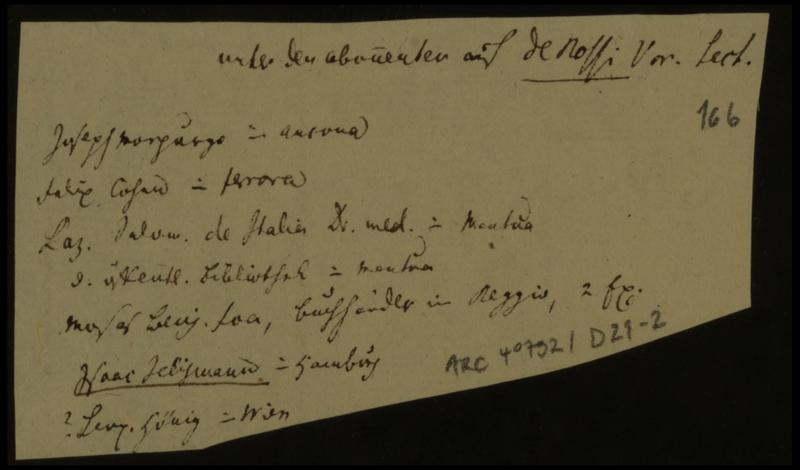 unter den abon̄enten auf de Rossi Var. Lect.
166
Joseph Morpurgo = Ancona
Felix Cohen = Ferrara
Laz. Salom. de Italia Dr. med. = Mantua
d. öffentl. Bibliothek = Mantua
Moses Benj. Foa, Buchhändler in Reggio, 2 Ex.
Isaac Seligmann = Hamburg
ARC 4° 792 / D29-2
? Leop. Hönig = Wien